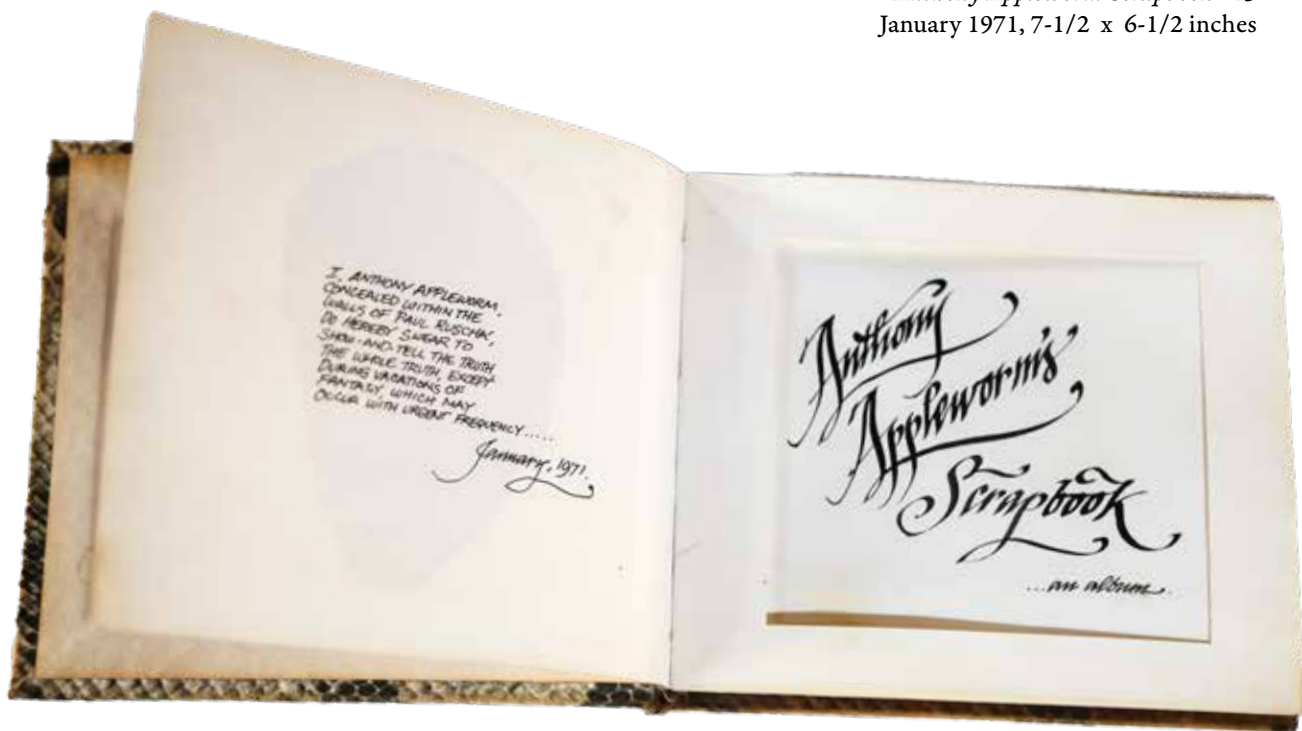 January 1971, 7-1/2 x 6-1/2 inches
I, ANTHONY APPLEWORM,
CONCEALED WITHIN THE
WALLS OF PAUL RUSCHA,
DO HEREBY SWEAR TO
SHOW-AND-TELL THE TRUTH
THE WHOLE TRUTH, EXCEPT
DURING VACATIONS OF
FANTASY, WHICH MAY
OCCUR WITH URGENT FREQUENCY.....
January, 1971.
Anthony
Appleworm's
Scrapbook
...an album...